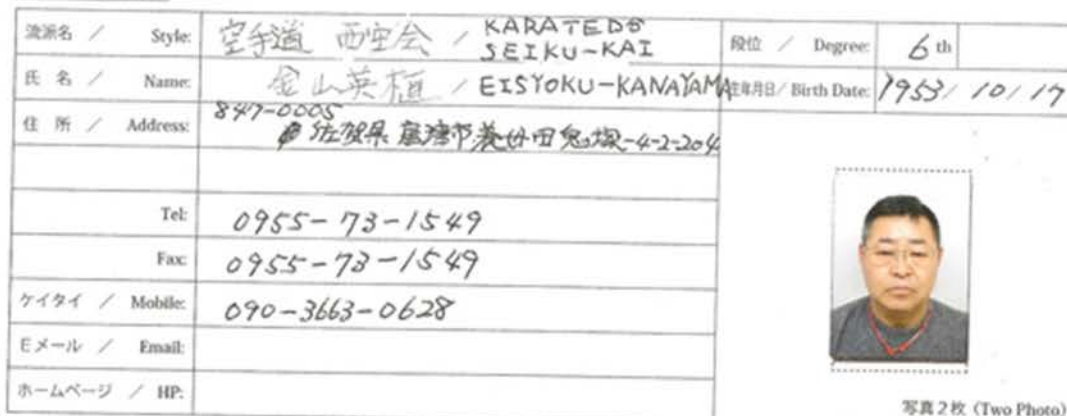 流派名 / Style: 空手道 西空会 / KARATEDO SEIKU-KAI
段位 / Degree: 6 th
氏 名 / Name: 金山英植 / EISYOKU-KANAYAMA
生年月日 / Birth Date: 1953 / 10 / 17
住 所 / Address: 847-0005
佐賀県 唐津市養母田鬼塚-4-2-204
Tel: 0955-73-1549
Fax: 0955-73-1549
ケイタイ / Mobile: 090-3663-0628
Eメール / Email:
ホームページ / HP:
写真2枚 (Two Photo)